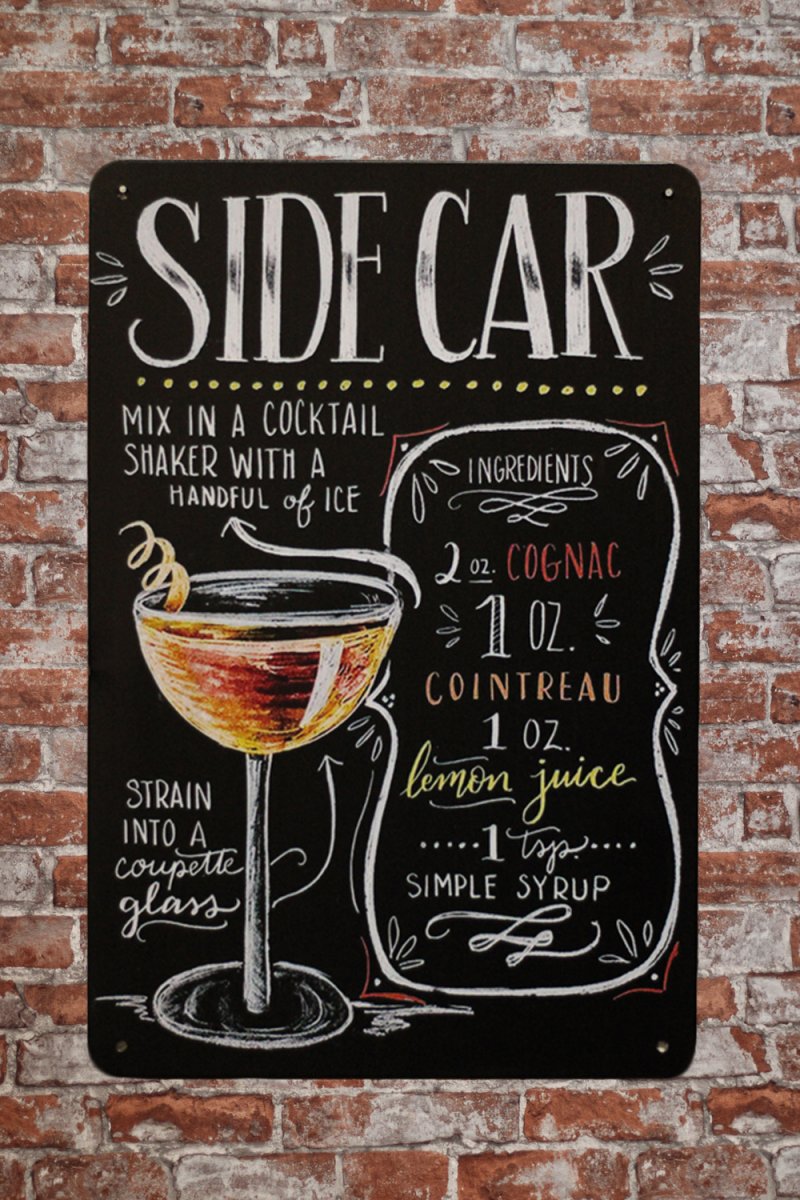 SIDE CAR
MIX IN A COCKTAIL
SHAKER WITH A
HANDFUL of ICE
INGREDIENTS
2 oz. COGNAC
1 OZ.
COINTREAU
1 OZ.
lemon juice
1 tsp.
SIMPLE SYRUP
STRAIN
INTO A
coupette
glass